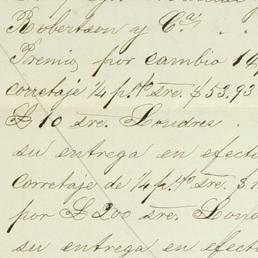 Robertson y Ca.
Premio por cambio 1
corretaje 1/4 p.% sre. $53.93
£ 10 sre. Londres
su entrega en efect
Corretaje de 1/4 p.% sre. $
por £ 200 sre. Lon
su entrega en efect